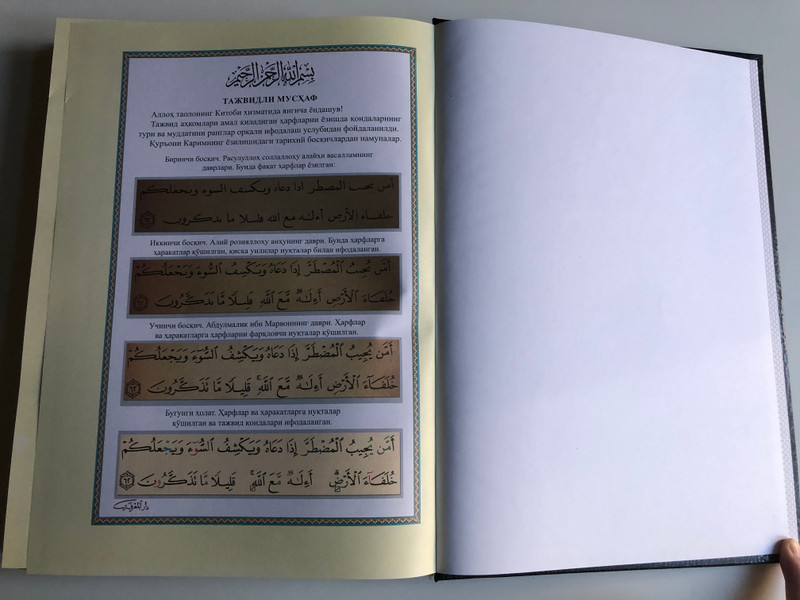 بسم الله الرحمن الرحيم
ТАЖВИДЛИ МУСҲАФ
Аллоҳ таолонинг Китоби хизматида янгича ёндашув!
Тажвид аҳкомлари амал қиладиган ҳарфларни ёзишда қоидаларнинг
тури ва муддатини ранглар орқали ифодалаш услубидан фойдаланилди.
Қуръони Каримнинг ёзилишидаги тарихий босқичлардан намуналар.
Биринчи босқич. Расулуллоҳ соллаллоҳу алайҳи васалламнинг
даврлари. Бунда фақат ҳарфлар ёзилган:
امن يجيب المضطر اذا دعاه ويكشف السوء ويجعلكم
خلفاء الارض أءلـه مع الله قليلا ما تذكرون
Иккинчи босқич. Алий розияллоҳу анҳунинг даври. Бунда ҳарфларга
ҳаракатлар қўшилган, қисқа унлилар нуқталар билан ифодаланган.
أَمَّن يُجِيبُ ٱلْمُضْطَرَّ إِذَا دَعَاهُ وَيَكْشِفُ ٱلسُّوٓءَ وَيَجْعَلُكُمْ
خُلَفَآءَ ٱلْأَرْضِ أَءِلَٰهٌ مَّعَ ٱللَّهِ قَلِيلًا مَّا تَذَكَّرُونَ
Учинчи босқич. Абдулмалик ибн Марвоннинг даври. Ҳарфлар
ва ҳаракатларга ҳарфларни фарқловчи нуқталар қўшилган.
أَمَّن يُجِيبُ ٱلْمُضْطَرَّ إِذَا دَعَاهُ وَيَكْشِفُ ٱلسُّوٓءَ وَيَجْعَلُكُمْ
خُلَفَآءَ ٱلْأَرْضِ أَءِلَٰهٌ مَّعَ ٱللَّهِ قَلِيلًا مَّا تَذَكَّرُونَ ٦٢
Бугунги ҳолат. Ҳарфлар ва ҳаракатларга нуқталар
қўшилган ва тажвид қоидалари ифодаланган.
أَمَّن يُجِيبُ ٱلْمُضْطَرَّ إِذَا دَعَاهُ وَيَكْشِفُ ٱلسُّوٓءَ وَيَجْعَلُكُمْ
خُلَفَآءَ ٱلْأَرْضِ أَءِلَٰهٌ مَّعَ ٱللَّهِ قَلِيلًا مَّا تَذَكَّرُونَ ٦٢
دار المعرفة